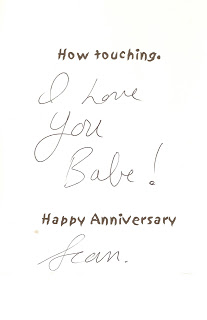 How touching.
I Love
You
Babe!
Happy Anniversary
Sean.